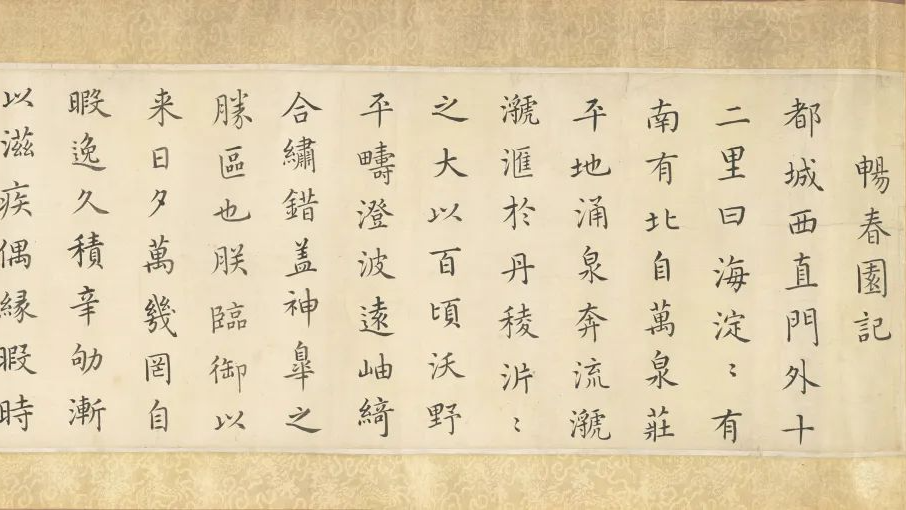 暢春園記
都城西直門外十
二里曰海淀〻有
南有北自萬泉莊
平地涌泉奔流㶁
㶁滙於丹稜沜〻
之大以百頃沃野
平疇澄波遠岫綺
合繡錯盖神皋之
勝區也朕臨御以
来日夕萬幾罔自
暇逸久積辛劬漸
以滋疾偶縁暇時